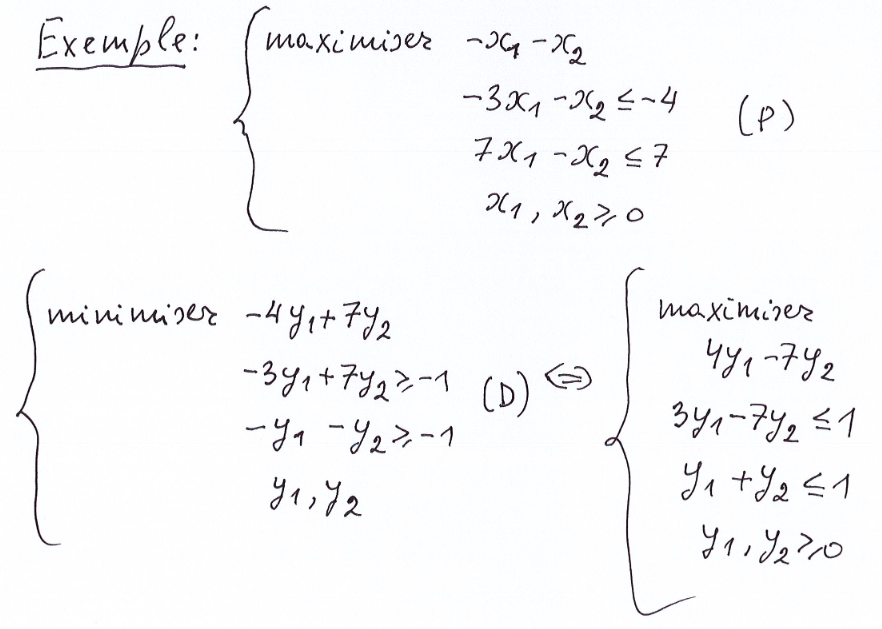 Exemple: maximiser -x₁ -x₂
-3x₁ -x₂ ≤ -4 (P)
7x₁ -x₂ ≤ 7
x₁, x₂ ≥ 0
minimiser -4y₁+7y₂
-3y₁+7y₂ ≥ -1 (D) ⇔
-y₁ -y₂ ≥ -1
y₁, y₂
maximiser
4y₁ -7y₂
3y₁ -7y₂ ≤ 1
y₁ +y₂ ≤ 1
y₁, y₂ ≥ 0